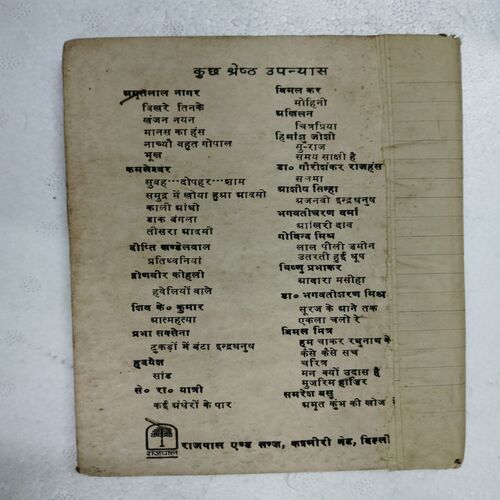 कुछ श्रेष्ठ उपन्यास
अमृतलाल नागर
बिखरे तिनके
खंजन नयन
मानस का हंस
नाच्यौ बहुत गोपाल
भूख
कमलेश्वर
सुबह···दोपहर···शाम
समुद्र में खोया हुआ आदमी
काली आंधी
डाक बंगला
तीसरा आदमी
दीप्ति खण्डेलवाल
प्रतिध्वनियां
द्रोणवीर कोहली
हवेलियों वाले
शिव के० कुमार
आत्महत्या
प्रभा सक्सेना
टुकड़ों में बंटा इन्द्रधनुष
हृदयेश
सांड
से० रा० यात्री
कई अंधेरों के पार
बिमल कर
मोहिनी
अखिलन
चित्रप्रिया
हिमांशु जोशी
सु-राज
समय साक्षी है
डा० गौरीशंकर राजहंस
सलमा
आशीष सिन्हा
अजनबी इन्द्रधनुष
भगवतीचरण वर्मा
आखिरी दांव
गोविन्द मिश्र
लाल पीली ज़मीन
उतरती हुई धूप
विष्णु प्रभाकर
आवारा मसीहा
डा० भगवतीशरण मिश्र
सूरज के आने तक
एकला चलो रे
बिमल मित्र
हम चाकर रघुनाथ के
कैसे कैसे सच
चरित्र
मन क्यों उदास है
मुजरिम हाज़िर
समरेश बसु
अमृत कुंभ की खोज
राजपाल
राजपाल एण्ड सन्ज़, कश्मीरी गेट, दिल्ली